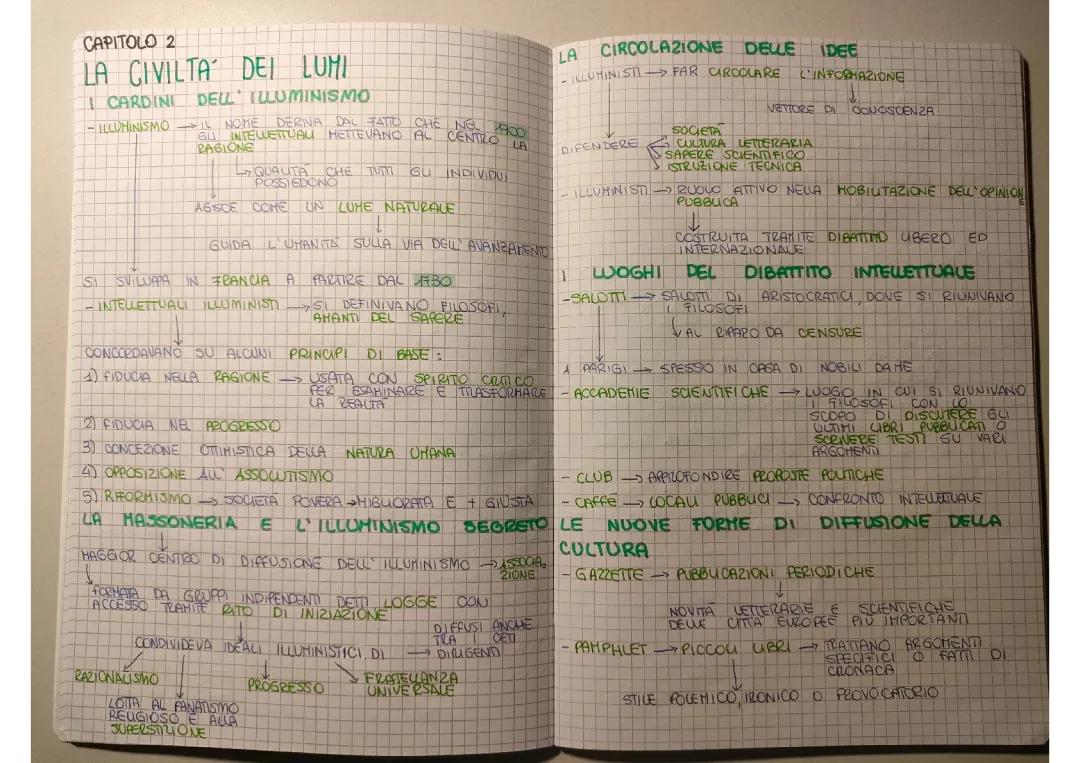 CAPITOLO 2
LA CIVILTA' DEI LUMI
I CARDINI DELL'ILLUMINISMO
- ILLUMINISMO → IL NOME DERIVA DAL FATTO CHE NEL 1700
GLI INTELLETTUALI METTEVANO AL CENTRO LA
RAGIONE
↳ QUALITÀ CHE TUTTI GLI INDIVIDUI
POSSIEDONO
AGISCE COME UN LUME NATURALE
GUIDA L'UMANITÀ SULLA VIA DELL'AVANZAMENTO
SI SVILUPPA IN FRANCIA A PARTIRE DAL 1730
- INTELLETTUALI ILLUMINISTI → SI DEFINIVANO FILOSOFI,
AMANTI DEL SAPERE
CONCORDAVANO SU ALCUNI PRINCIPI DI BASE:
1) FIDUCIA NELLA RAGIONE → USATA CON SPIRITO CRITICO
PER ESAMINARE E TRASFORMARE
LA REALTÀ
2) FIDUCIA NEL PROGRESSO
3) CONCEZIONE OTTIMISTICA DELLA NATURA UMANA
4) OPPOSIZIONE ALL'ASSOLUTISMO
5) RIFORMISMO → SOCIETÀ POVERA → MIGLIORATA E + GIUSTA
LA MASSONERIA E L'ILLUMINISMO SEGRETO
MAGGIOR CENTRO DI DIFFUSIONE DELL'ILLUMINISMO → ASSOCIA-
ZIONE
FORMATA DA GRUPPI INDIPENDENTI DETTI LOGGE CON
ACCESSO TRAMITE RITO DI INIZIAZIONE
CONDIVIDEVA IDEALI ILLUMINISTICI DI → DIFFUSI ANCHE
TRA I CETI
DIRIGENTI
RAZIONALISMO
LOTTA AL FANATISMO
RELIGIOSO E ALLA
SUPERSTIZIONE
PROGRESSO
FRATELLANZA
UNIVERSALE
LA CIRCOLAZIONE DELLE IDEE
- ILLUMINISTI → FAR CIRCOLARE L'INFORMAZIONE
VETTORE DI CONOSCENZA
DIFENDERE
SOCIETÀ
CULTURA LETTERARIA
SAPERE SCIENTIFICO
ISTRUZIONE TECNICA
- ILLUMINISTI → RUOLO ATTIVO NELLA MOBILITAZIONE DELL'OPINION
PUBBLICA
COSTRUITA TRAMITE DIBATTITO LIBERO ED
INTERNAZIONALE
I LUOGHI DEL DIBATTITO INTELLETTUALE
- SALOTTI → SALOTTI DI ARISTOCRATICI, DOVE SI RIUNIVANO
I FILOSOFI
↓ AL RIPARO DA CENSURE
A PARIGI → SPESSO IN CASA DI NOBILI DAME
- ACCADEMIE SCIENTIFICHE → LUOGO IN CUI SI RIUNIVANO
I FILOSOFI CON LO
SCOPO DI DISCUTERE GLI
ULTIMI LIBRI PUBBLICATI O
SCRIVERE TESTI SU VARI
ARGOMENTI
- CLUB → APPROFONDIRE PROPOSTE POLITICHE
- CAFFÈ → LOCALI PUBBLICI → CONFRONTO INTELLETTUALE
LE NUOVE FORME DI DIFFUSIONE DELLA
CULTURA
- GAZZETTE → PUBBLICAZIONI PERIODICHE
NOVITÀ LETTERARIE E SCIENTIFICHE
DELLE CITTÀ EUROPEE PIÙ IMPORTANTI
- PAMPHLET → PICCOLI LIBRI → TRATTANO ARGOMENTI
SPECIFICI O FATTI DI
CRONACA
STILE POLEMICO, IRONICO O PROVOCATORIO